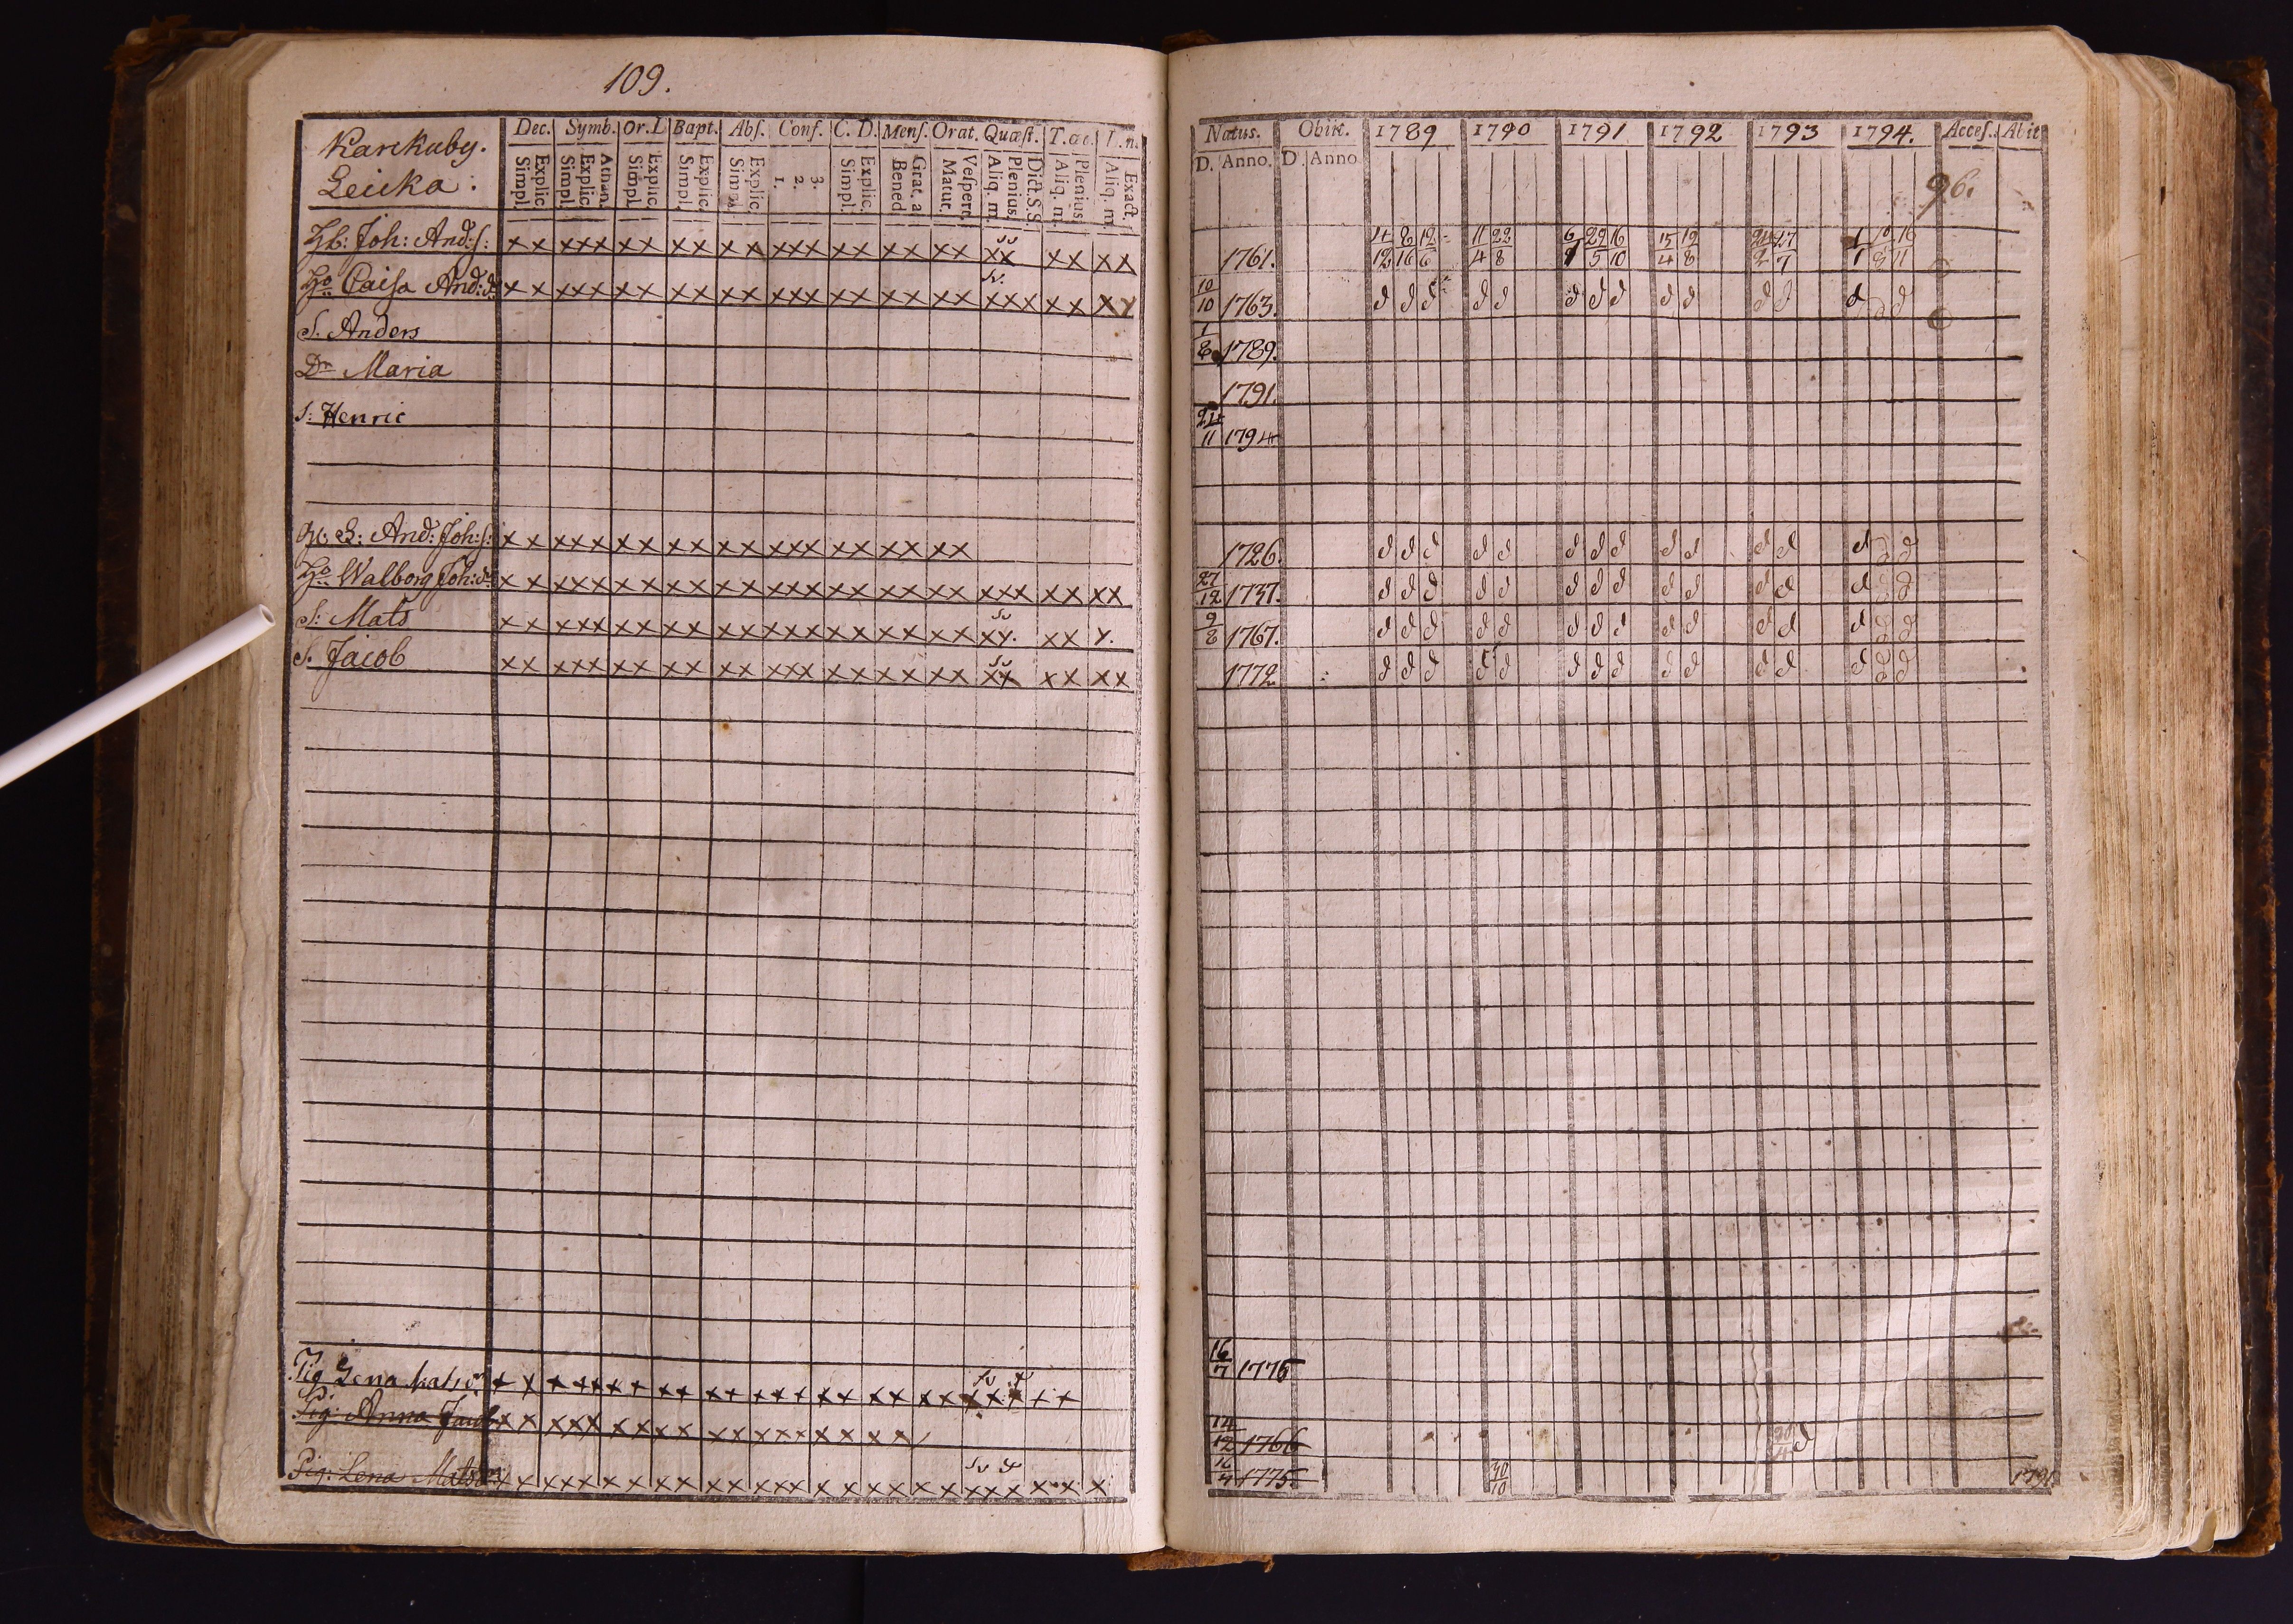 109.
Karckuby.
Leicka.
Dec. Symb. Or. L Bapt. Abſ. Conf. C. D. Menſ. Orat. Quæſt. T. œc. I. n.
Explic. Simpl. Athan. Explic. Simpl. Explic. Simpl. Explic. Simpl. Explic. Simpl. 3. 2. 1. Explic. Simpl. Grat. a Bened Veſpert. Matut. Dict. S. S. Plenius. Aliq. m. Plenius. Aliq. m. Exact. Aliq. m.
Natus. Obiit. 1789 1790 1791 1792 1793 1794. Acceſ. Abit
D. Anno. D. Anno
96.
Hb: Joh: And:s: x x xxx x x x x x x xxx x x x x x x xx x x x x 1761. 4/12 8/16 12/6 11/4 22/8 29/5 16/10 15/4 19/8
Ho Caisa And:dr x x xxx x x x x x x xxx x x x x x x xxx x x x y 10/10 1763. d d d d d d d d d d d d d d d
S. Anders 1/8 1789.
Dr Maria 1791.
S: Henric 24/11 1794
And: Joh:s: x x xxx x x x x x x xxx x x x x x x 1726. d d d d d d d d d d d d d d d
Ho Walborg Joh:dr x x xxx x x x x x x xxx x x x x x x xxx x x x x 27/12 1737. d d d d d d d d d d d d d d d
S: Mats x x xxx x x x x x x xxx x x x x x x xy. x x y. 9/8 1767. d d d d d d d d d d d d d d d
S. Jacob x x xxx x x x x x x xxx x x x x x x xx x x x x 1772 d d d d d d d d d d d d d d d
Pig Lena Mats dr 16/7 1775
Pig: Anna Jacob 14/12 1766 d
Pig: Lena Mats 1775. 30/10 1791